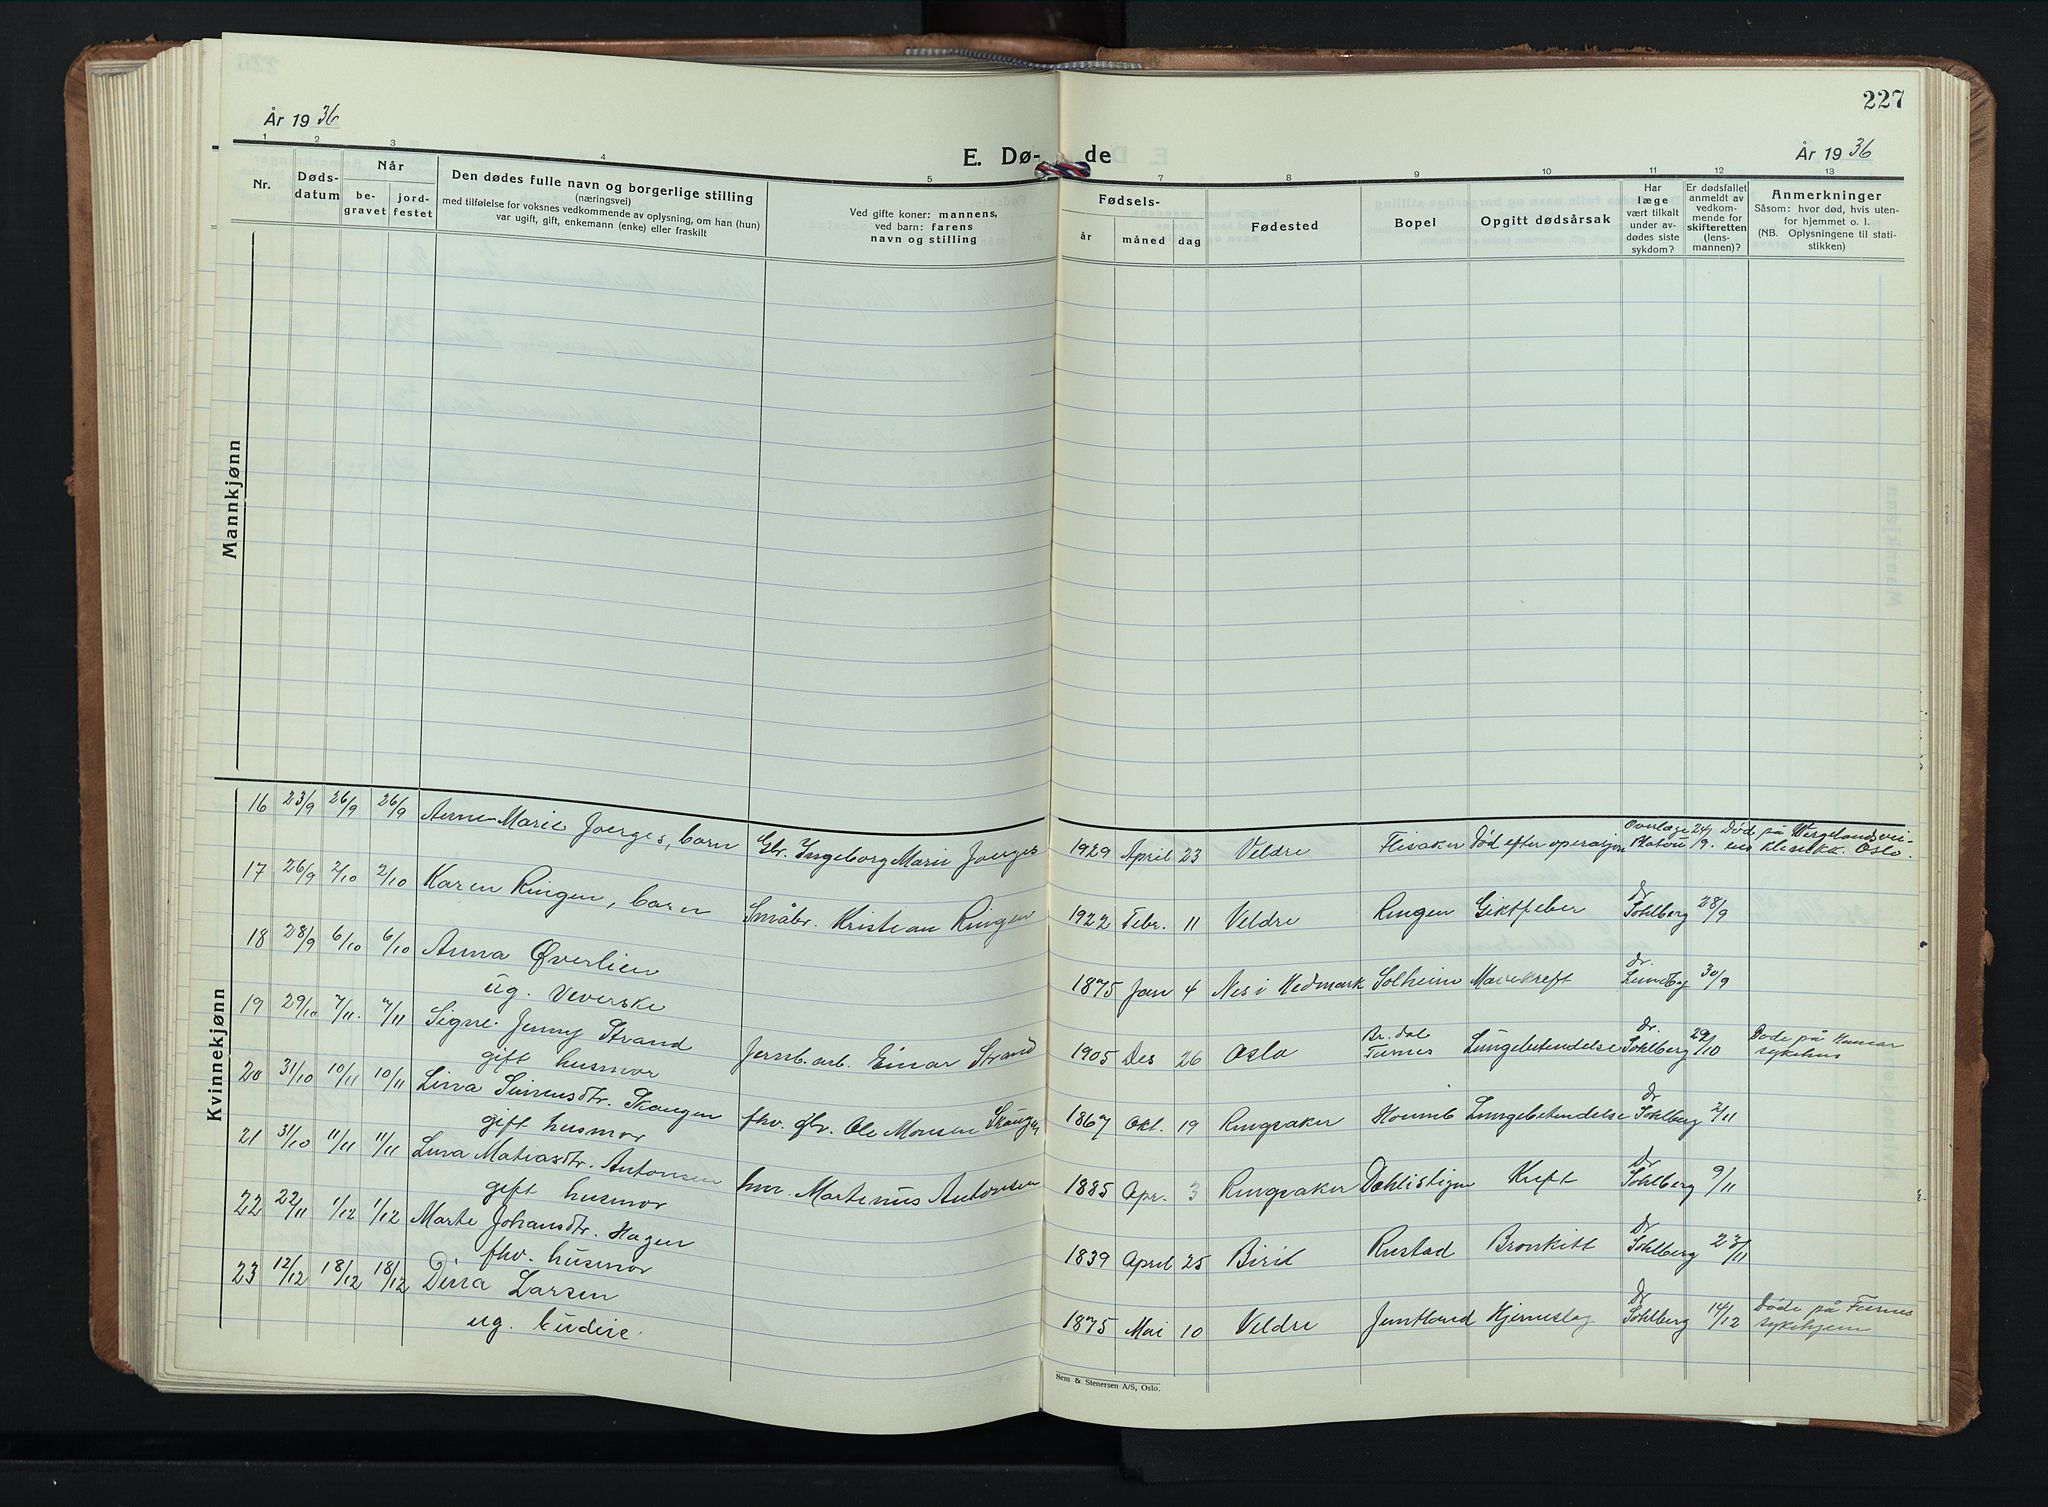 227
År 1936
År 1936
E. Dø-
de
1
2
3
4
5
7
8
9
10
11
12
13
Nr.
Døds-
datum
Når
be-
gravet
jord-
festet
Den dødes fulle navn og borgerlige stilling
(næringsvei)
med tilføielse for voksnes vedkommende av oplysning, om han (hun)
var ugift, gift, enkemann (enke) eller fraskilt
Ved gifte koner: mannens,
ved barn: farens
navn og stilling
Fødsels-
år
måned
dag
Fødested
Bopel
Opgitt dødsårsak
Har
læge
vært tilkalt
under av-
dødes siste
sykdom?
Er dødsfallet
anmeldt av
vedkom-
mende for
skifteretten
(lens-
mannen)?
Anmerkninger
Såsom: hvor død, hvis uten-
for hjemmet o. l.
(NB. Oplysningene til stati-
stikken)
Mannkjønn
Kvinnekjønn
16 23/9 26/9 26/9 Anne-Marie Joerges, barn Gbr. Ingeborg Marie Joerges 1929 April 23 Veldre Flisaker Død efter operasjon Overlæge 24/9 Død på Wergelandsvei-
klinikk. Oslo.
17 26/9 2/10 2/10 Karen Ringen, barn Småbr. Kristian Ringen 1922 Febr. 11 Veldre Ringen Giktfeber dr Sohlberg 28/9
18 28/9 6/10 6/10 Anna Øverlien 1875 Jan 4 Nes i Hedmark Solheim dr. 30/9
ug. Veverske
19 29/10 7/11 7/11 Signe Jenny Strand Jernb.arb. Einar Strand 1905 Des 26 Oslo Br.dal Furnes Lungebetendelse Dr. Sohlberg 29/10 Døde på Hamar
sykehus
gift husmor
20 31/10 10/11 10/11 Lina Simensdtr. Skaugen fhv. gbr. Ole Monsen Skaugen 1867 Okt. 19 Ringsaker Lungebetendelse dr Sohlberg 2/11
gift husmor
21 31/10 11/11 11/11 Lina Matiasdtr. Antonsen Martinus Antonsen 1885 Apr. 3 Ringsaker Dæhlistigen Kreft Dr Sohlberg 9/11
gift husmor
22 22/11 1/12 1/12 Marte Johansdtr. Hagen 1839 April 25 Birid Rustad Bronkitt Dr Sohlberg 23/11
fhv. husmor
23 12/12 18/12 18/12 Dina Larsen 1875 Mai 10 Veldre Hjerneslag Dr Sohlberg 14/12 Døde på Furnes
sykehjem
ug. budeie
Sem & Stenersen A/S, Oslo.